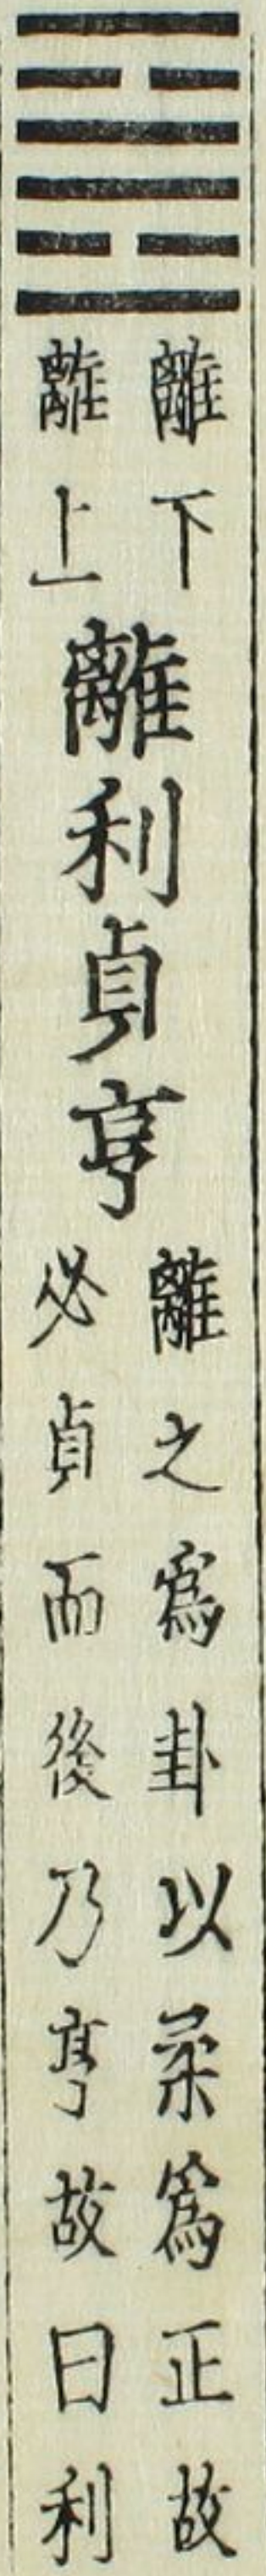 離下
離上
離利貞亨
離之爲卦以柔爲正故
必貞而後乃亨故曰利